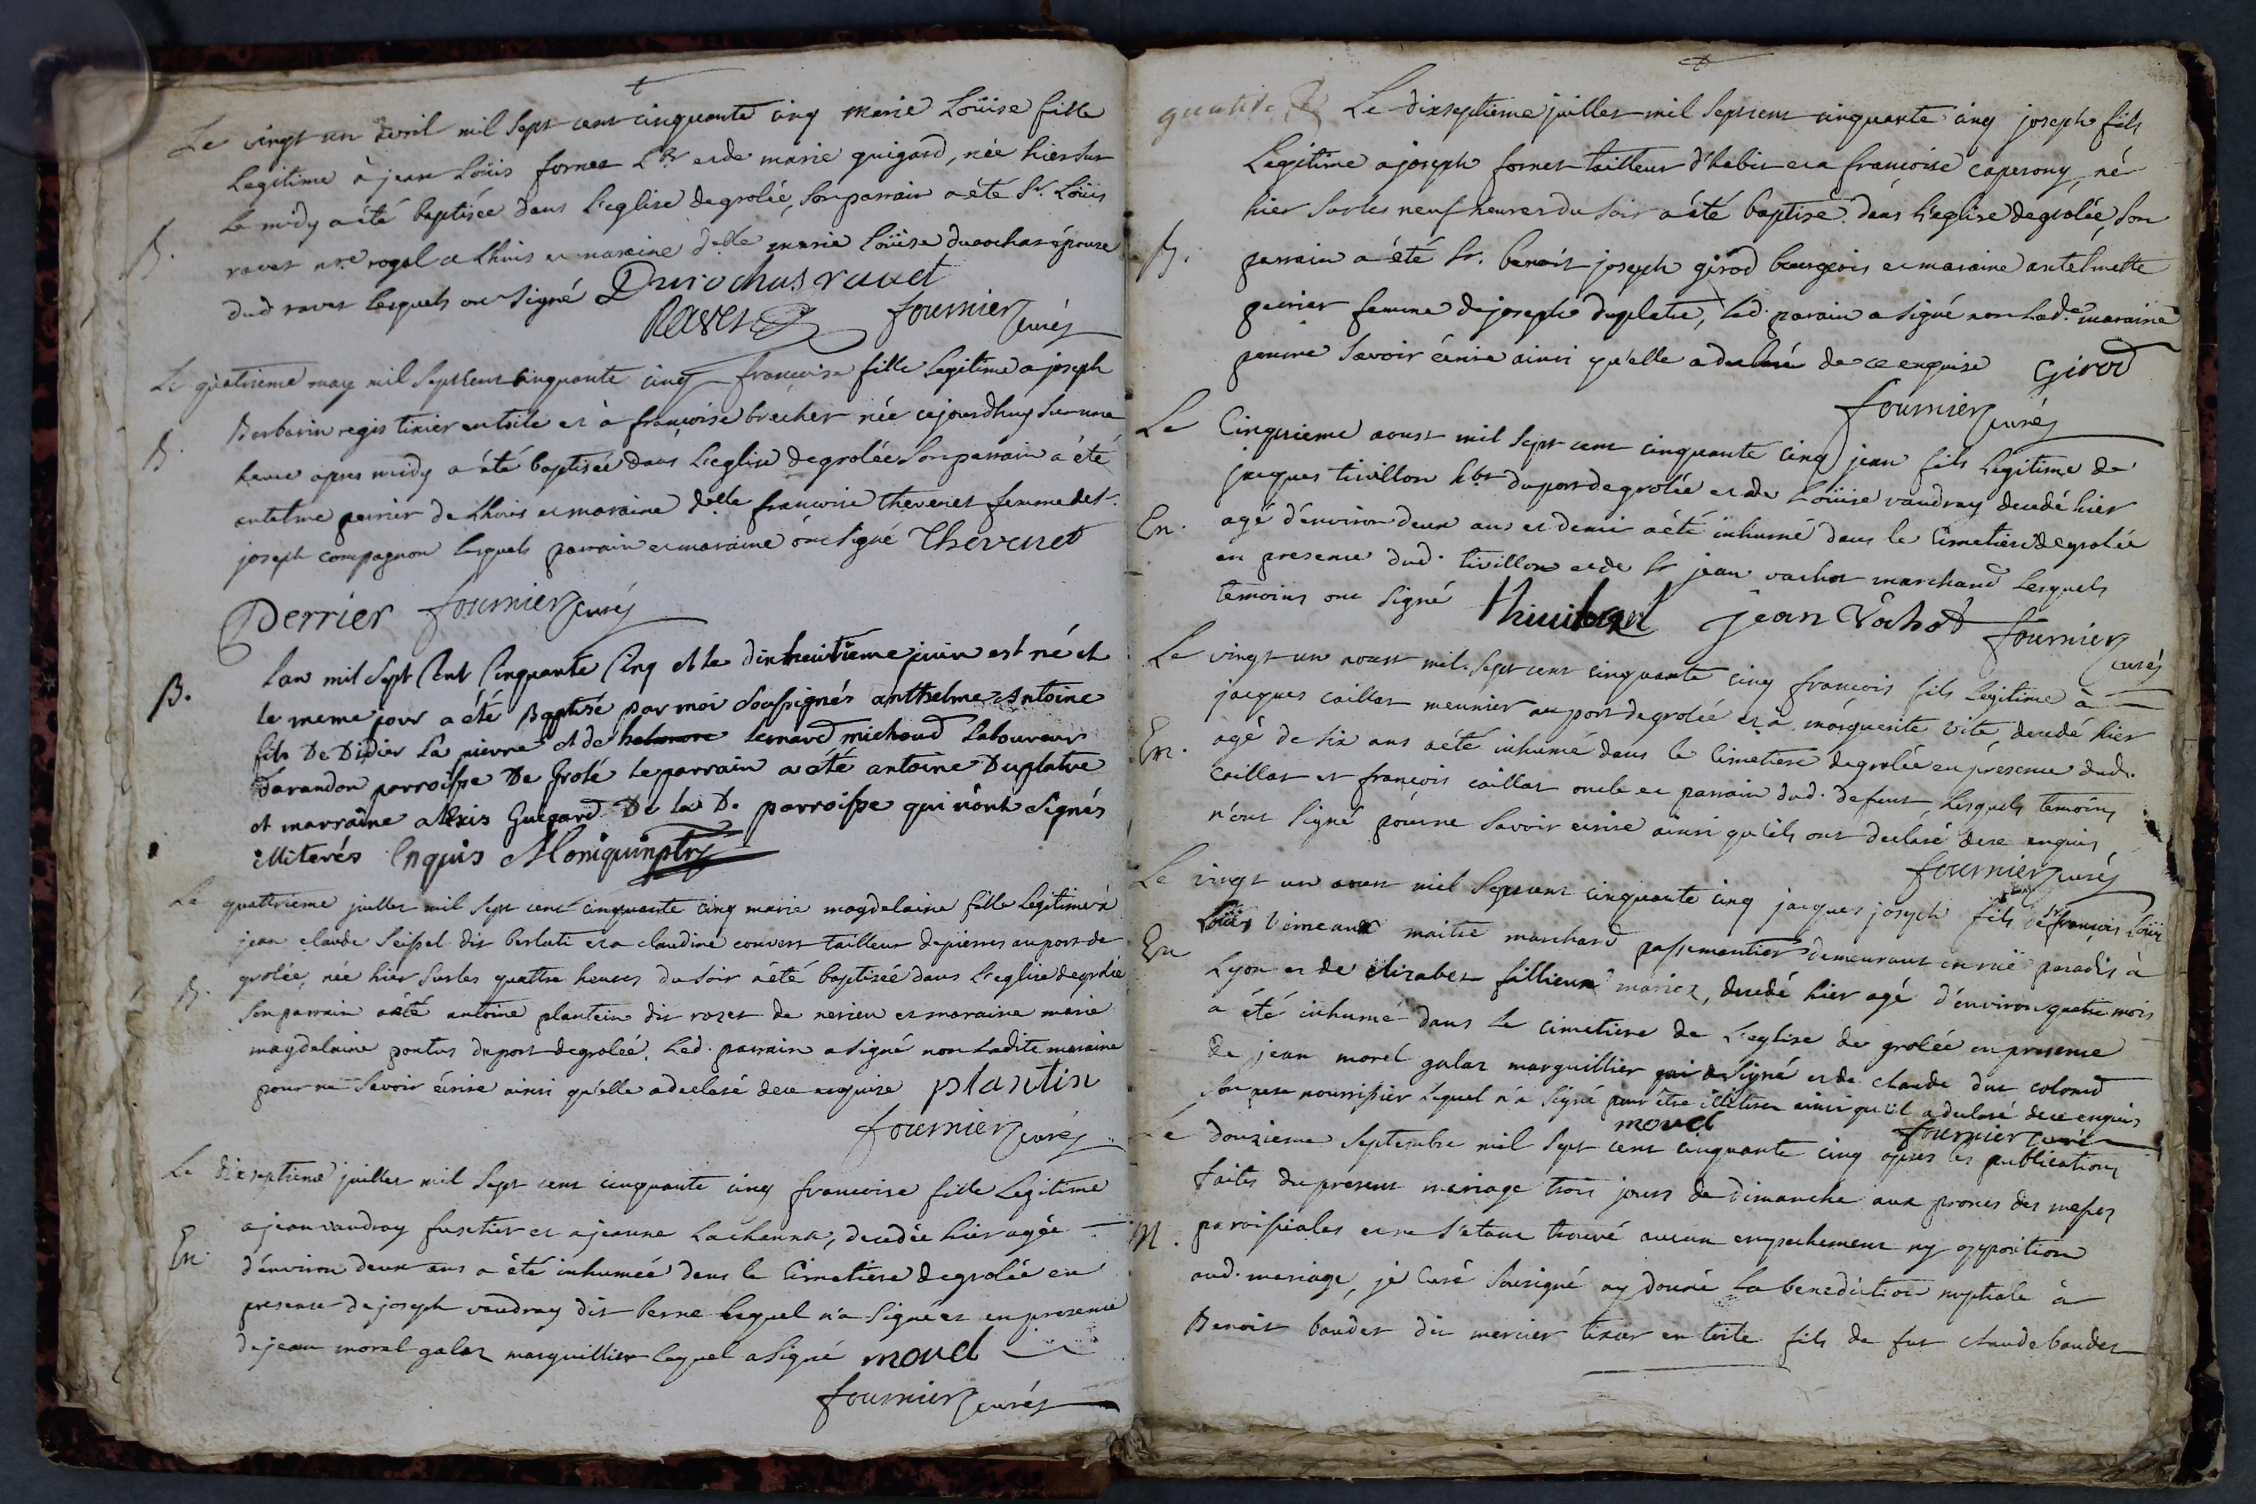 Le vingt un avril mil sept cent cinquante cinq marie Loüise fille
Legitime à jean Loüis fornet Lbr et de marie guigard, née hier sur
B. Le midy a été baptisée dans L'eglise de grolée, son parrain a été Sr. Loüis
ravet nre. royal a Lhuis et maraine delle marie Loüise durochas épouse
dud ravet lesquels ont signé Durochas ravet
Ravet fournier curé
Le quatrieme may mil sept cent cinquante cinq francoise fille Legitime a joseph
Barbarin regis tixier en toile et à françoise brecher née cejourdhuy sur une
B. heure apres midy a été baptisée dans L'eglise de grolée son parrain a été
antelme perrier de Lhuis et maraine delle francoise thevenet femme de sr.
joseph compagnon lesquels parrain et maraine ont signé Thevenet
Perrier fournier curé
B. Lan mil sept Cent Cinquante Cinq et le dixheuitieme juin est né et
le meme jour a été Baptisé par moi soussignés anthelme Antoine
fils De Didier La pierre et de bernard michoud laboureur
Darandon parroisse De Grolé le parrain a été antoine Duplatre
et marraine alexis Guigard De la D. parroisse qui n'ont signés
illiterés Enquis Moniquin ptre
Le quattrieme juillet mil sept cent cinquante cinq marie magdelaine fille Legitime à
jean claude Seissel dit berluti et a claudine convert tailleur de pierres au port de
grolée, née hier sur les quattre heures du soir a été baptisée dans L'eglise de grolée
B. son parrain a été antoine plantein dit rozet de nerieu et maraine marie
magdelaine pontus du port de grolée. Led. parrain a signé non Ladite maraine
pour ne savoir écrire ainsi qu'elle a declaré de ce enquise plantin
fournier curé
Le dixseptieme juillet mil sept cent cinquante cinq francoise fille Legitime
a jean vaudray fustier et a jeanne Lachanna, decedée hier agée
En d'environ deux ans a été inhumée dans le Cimetiere de grolée en
presence de joseph vaudray dit berne lequel n'a signé et en presence
de jean morel galaz marguillier lequel a signé morel
fournier curé
Le dixseptieme juillet mil sept cent cinquante cinq joseph fils
Legitime a joseph fornet tailleur d'habit et a francoise caperony, né
hier sur les neuf heures du soir a été baptisé dans L'eglise de grolée, son
B. parrain a été Sr. benoit joseph girod bourgeois et maraine antelmette
perrier femme de joseph duplatre, Led. parain a signé non Lade. maraine
pour ne savoir écrire ainsi qu'elle a declaré de ce enquise Girod
fournier curé
Le Cinquieme aoust mil sept cent cinquante cinq jean fils Legitime de
jacques tivillon hbt du port de grolée et de Loüise vaudray decedé hier
En. agé d'environ deux ans et demi a été inhumé dans le Cimetiere de grolée
en presence dud. tivillon et de Sr jean vachot marchand Lesquels
temoins ont signé jean Vachot fournier
curé
Le vingt un aoust mil sept cent cinquante cinq francois fils Legitime à
jacques caillat meunier au port de grolée et à marguerite vite, decedé hier
En. agé de six ans a été inhumé dans le Cimetiere de grolée en présence dud.
caillat et françois caillat oncle et parrain dud. defunt Lesquels temoins
n'ont signé pour ne savoir ecrire ainsi qu'ils ont declaré de ce enquis
fournier curé
Le vingt un aoust mil sept cent cinquante cinq jacques joseph fils de sr françois Loüis
En Loüis maitre marchand passementier demeurant en ruë paradis à
Lyon et de elizabet fillieux mariez, decedé hier agé d'environ quatre mois
a été inhumé dans Le cimetiere de L'eglise de grolée en presence
de jean morel galaz marguillier qui a signé et de claude duc colomb
son pere nourrissier lequel n'a signé pour être illiteré ainsi qu'il a declaré de ce enquis
morel fournier curé
Le douzieme septembre mil sept cent cinquante cinq apres les publications
faites du present mariage trois jours de Dimanche aux prones des messes
M. paroissiales et ne s'etant trouvé aucun empechement ny opposition
aud. mariage, je Curé soussigné ay donné La benediction nuptiale à
Benoit baudet dit mercier tixier en toile fils de fut claude baudet